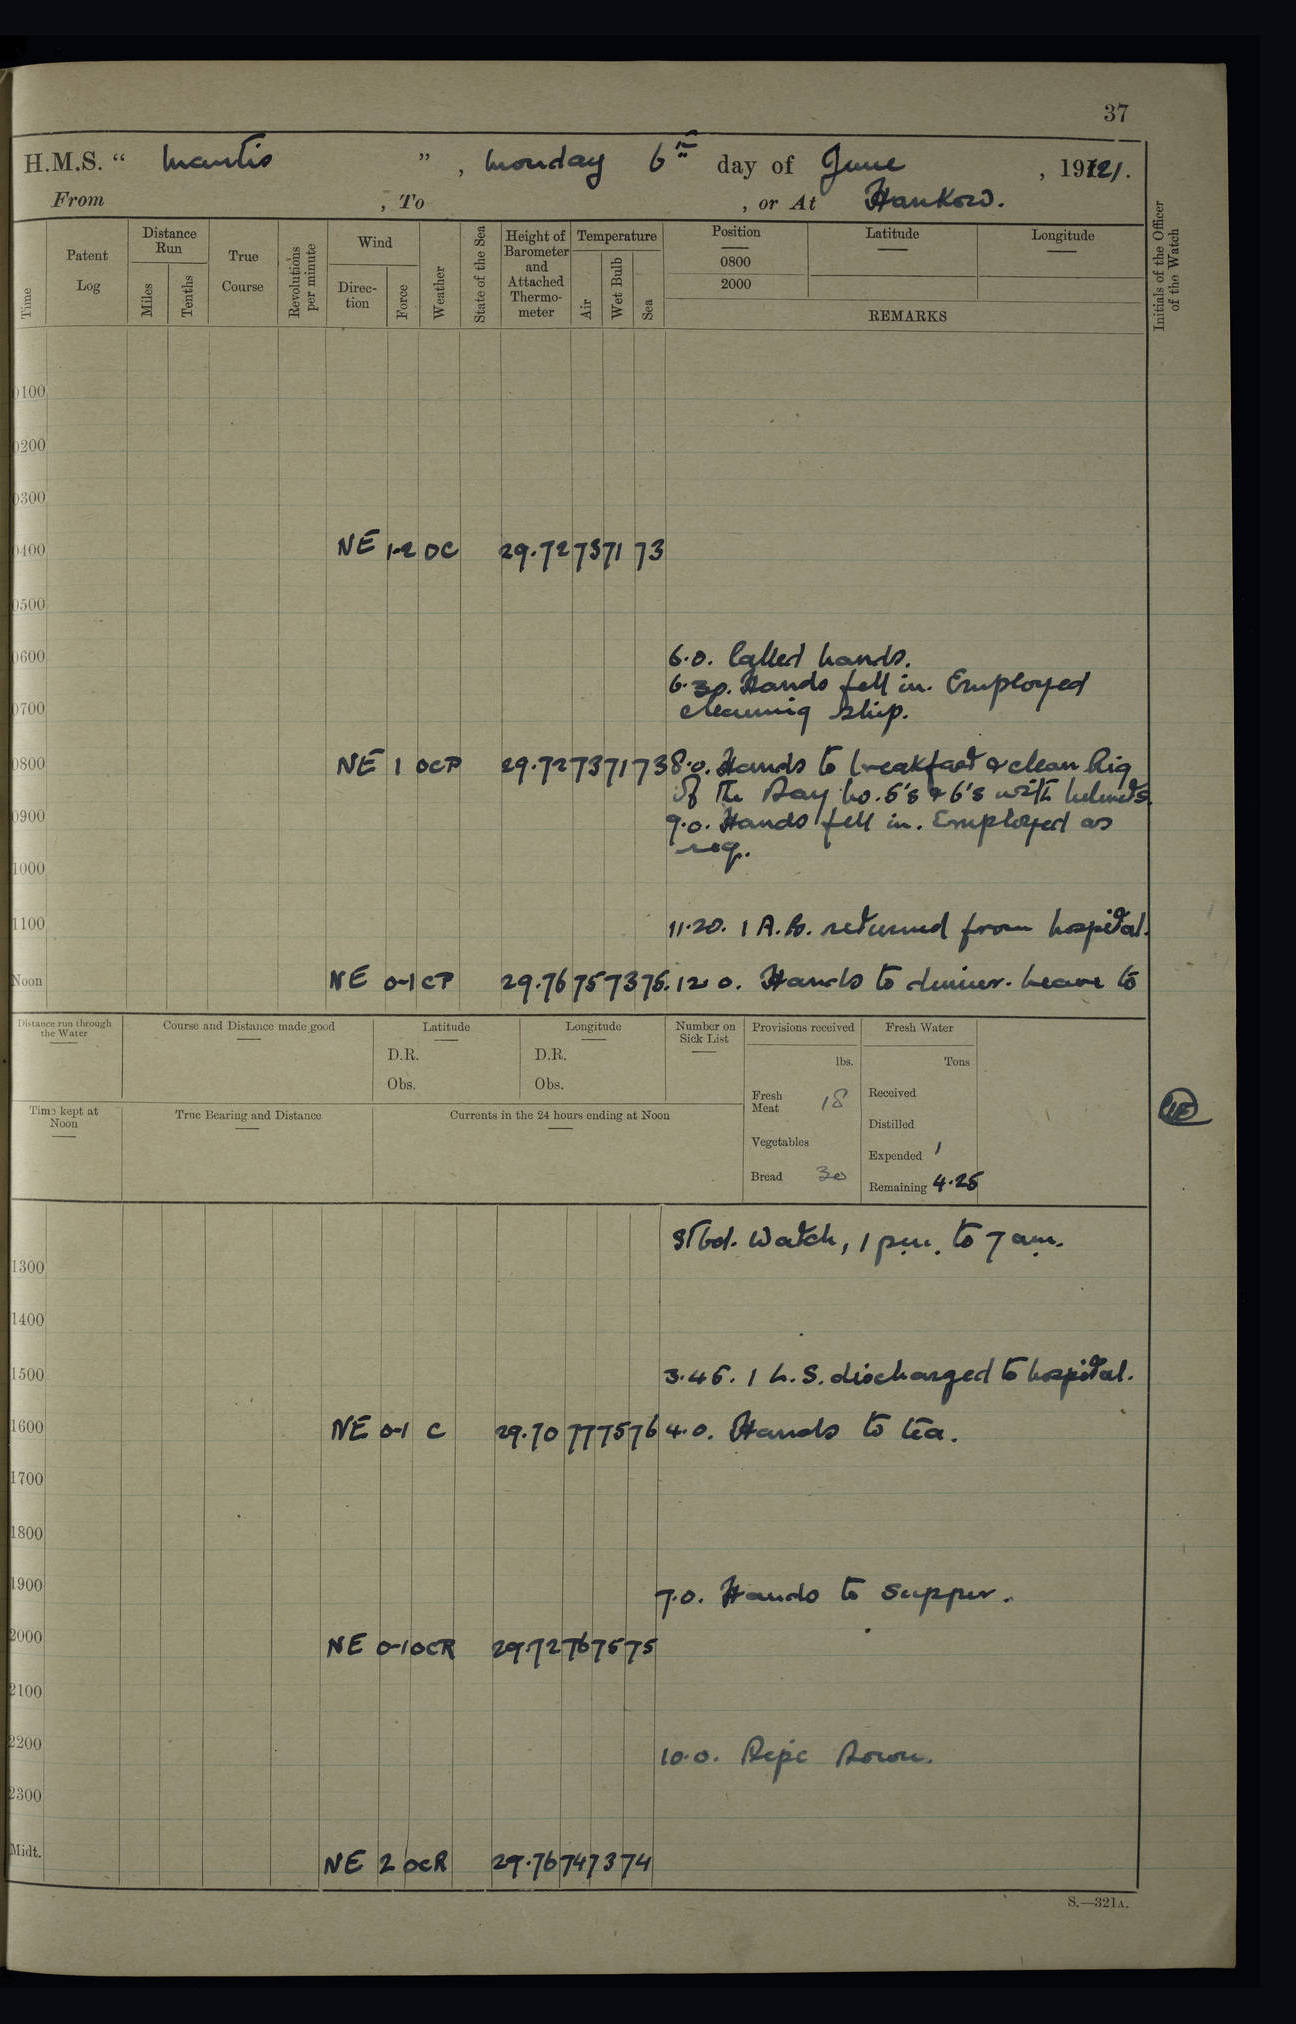 37
H.M.S. “ Mantis ”, Monday 6th day of June, 1921.
From , To , or At Hankow.
Time
Patent Log
Distance Run
Miles
Tenths
True Course
Revolutions per minute
Wind
Direction
Force
Weather
State of the Sea
Height of Barometer and Attached Thermometer
Temperature
Air
Wet Bulb
Sea
Position
0800
2000
Latitude
Longitude
REMARKS
Initials of the Officer of the Watch
0100
0200
0300
0400 NE 1-2 OC 29.72 73 71 73
0500
0600 6.0. Called hands.
6.30. Hands fell in. Employed
0700 cleaning ship.
0800 NE 1 OCP 29.72 73 71 73 8.0. Hands to breakfast & clean Rig
of the Day No. 5's & 6's with helmets.
0900 9.0. Hands fell in. Employed as
req.
1000
1100 11.20. 1 A.B. returned from hospital.
Noon NE 0-1 CP 29.76 75 73 75. 12.0. Hands to dinner. Leave to
Distance run through the Water
Course and Distance made good
Latitude
D.R.
Obs.
Longitude
D.R.
Obs.
Number on Sick List
Provisions received
lbs.
Fresh Meat 18
Vegetables
Bread 30
Fresh Water
Tons
Received
Distilled
Expended 1
Remaining 4.25
Time kept at Noon
True Bearing and Distance
Currents in the 24 hours ending at Noon
Stbd. Watch, 1 p.m. to 7 a.m.
1300
1400
1500 3.45. 1 L.S. discharged to hospital.
1600 NE 0-1 C 29.70 77 75 76 4.0. Hands to tea.
1700
1800
1900 7.0. Hands to Supper.
2000 NE 0-1 OCR 29.72 76 75 75
2100
2200 10.0. Pipe Down.
2300
Midt. NE 2 OCR 29.76 74 73 74
S.—321A.